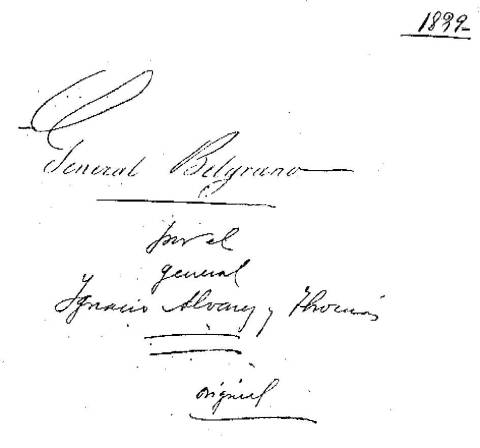 1839-
General Belgrano
por el
general
Ignacio Alvarez y Thomás
original